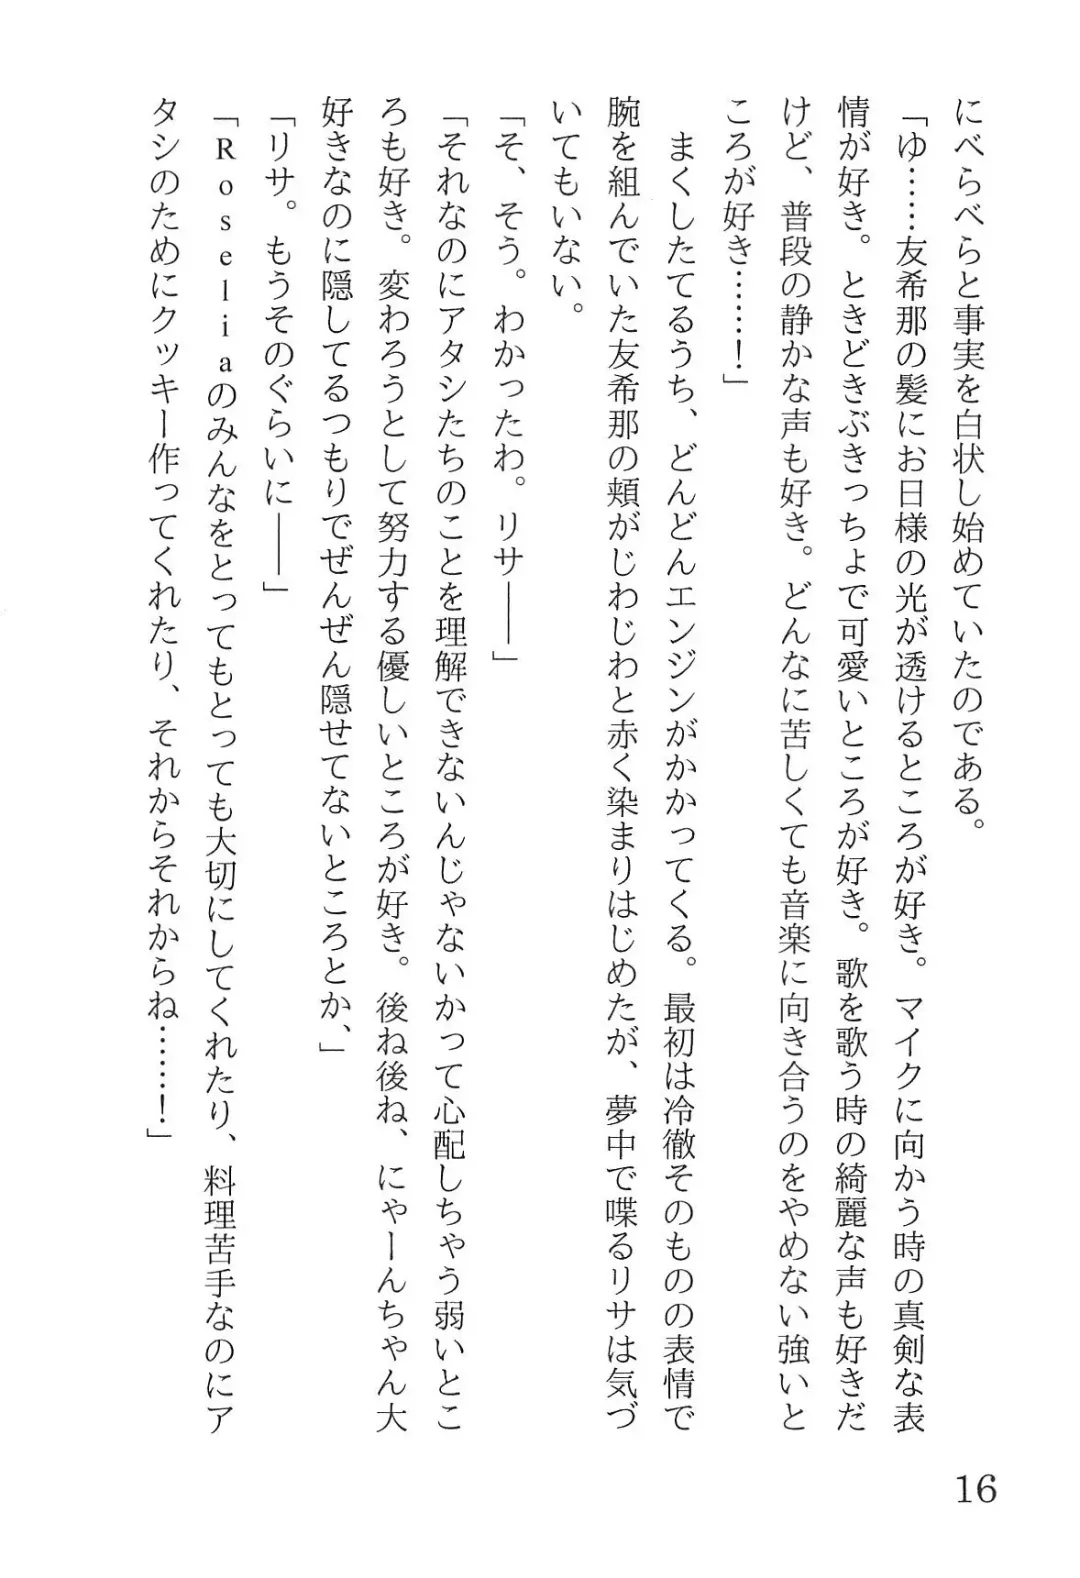 にべらべらと事実を白状し始めていたのである。
「ゆ……友希那の髪にお日様の光が透けるところが好き。マイクに向かう時の真剣な表
情が好き。ときどきぶきっちょで可愛いところが好き。歌を歌う時の綺麗な声も好きだ
けど、普段の静かな声も好き。どんなに苦しくても音楽に向き合うのをやめない強いと
ころが好き……！」
　まくしたてるうち、どんどんエンジンがかかってくる。最初は冷徹そのものの表情で
腕を組んでいた友希那の頬がじわじわと赤く染まりはじめたが、夢中で喋るリサは気づ
いてもいない。
「そ、そう。わかったわ。リサ――」
「それなのにアタシたちのことを理解できないんじゃないかって心配しちゃう弱いとこ
ろも好き。変わろうとして努力する優しいところが好き。後ね後ね、にゃーんちゃん大
好きなのに隠してるつもりでぜんぜん隠せてないところとか、」
「リサ。もうそのぐらいに――」
「Ｒｏｓｅｌｉａのみんなをとってもとっても大切にしてくれたり、料理苦手なのにア
タシのためにクッキー作ってくれたり、それからそれからね……！」
16